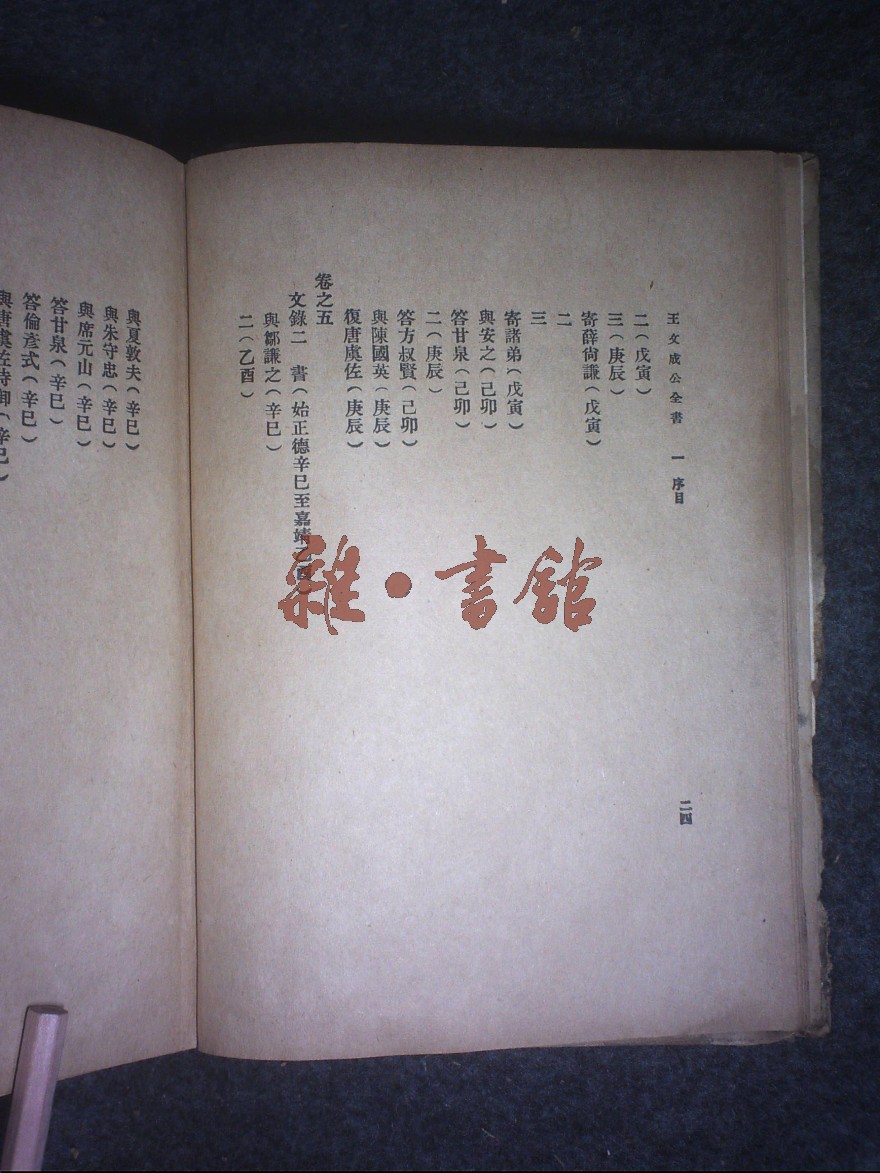 王文成公全書 一 序目
二四
二(戊寅)
三(庚辰)
寄薛尙謙(戊寅)
二
三
寄諸弟(戊寅)
與安之(己卯)
答甘泉(己卯)
二(庚辰)
答方叔賢(己卯)
與陳國英(庚辰)
復唐虞佐(庚辰)
卷之五
文錄二 書(始正德辛巳至嘉靖乙酉)
與鄒謙之(辛巳)
二(乙酉)
與夏敦夫(辛巳)
與朱守忠(辛巳)
與席元山(辛巳)
答甘泉(辛巳)
答倫彥式(辛巳)
與唐虞佐侍御(辛巳)
雜·書館